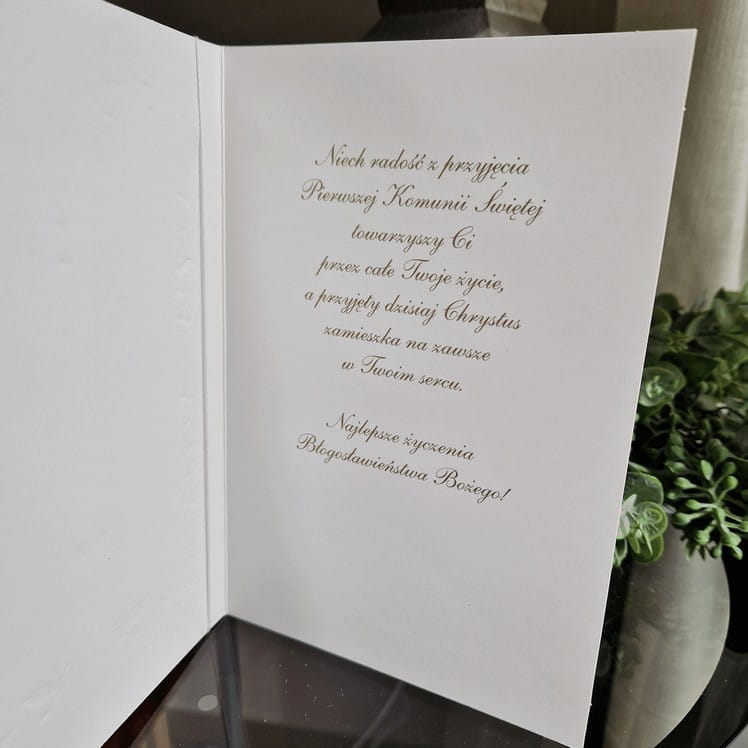 Niech radość z przyjęcia
Pierwszej Komunii Świętej
towarzyszy Ci
przez całe Twoje życie,
a przyjęty dzisiaj Chrystus
zamieszka na zawsze
w Twoim sercu.
Najlepsze życzenia
Błogosławieństwa Bożego!